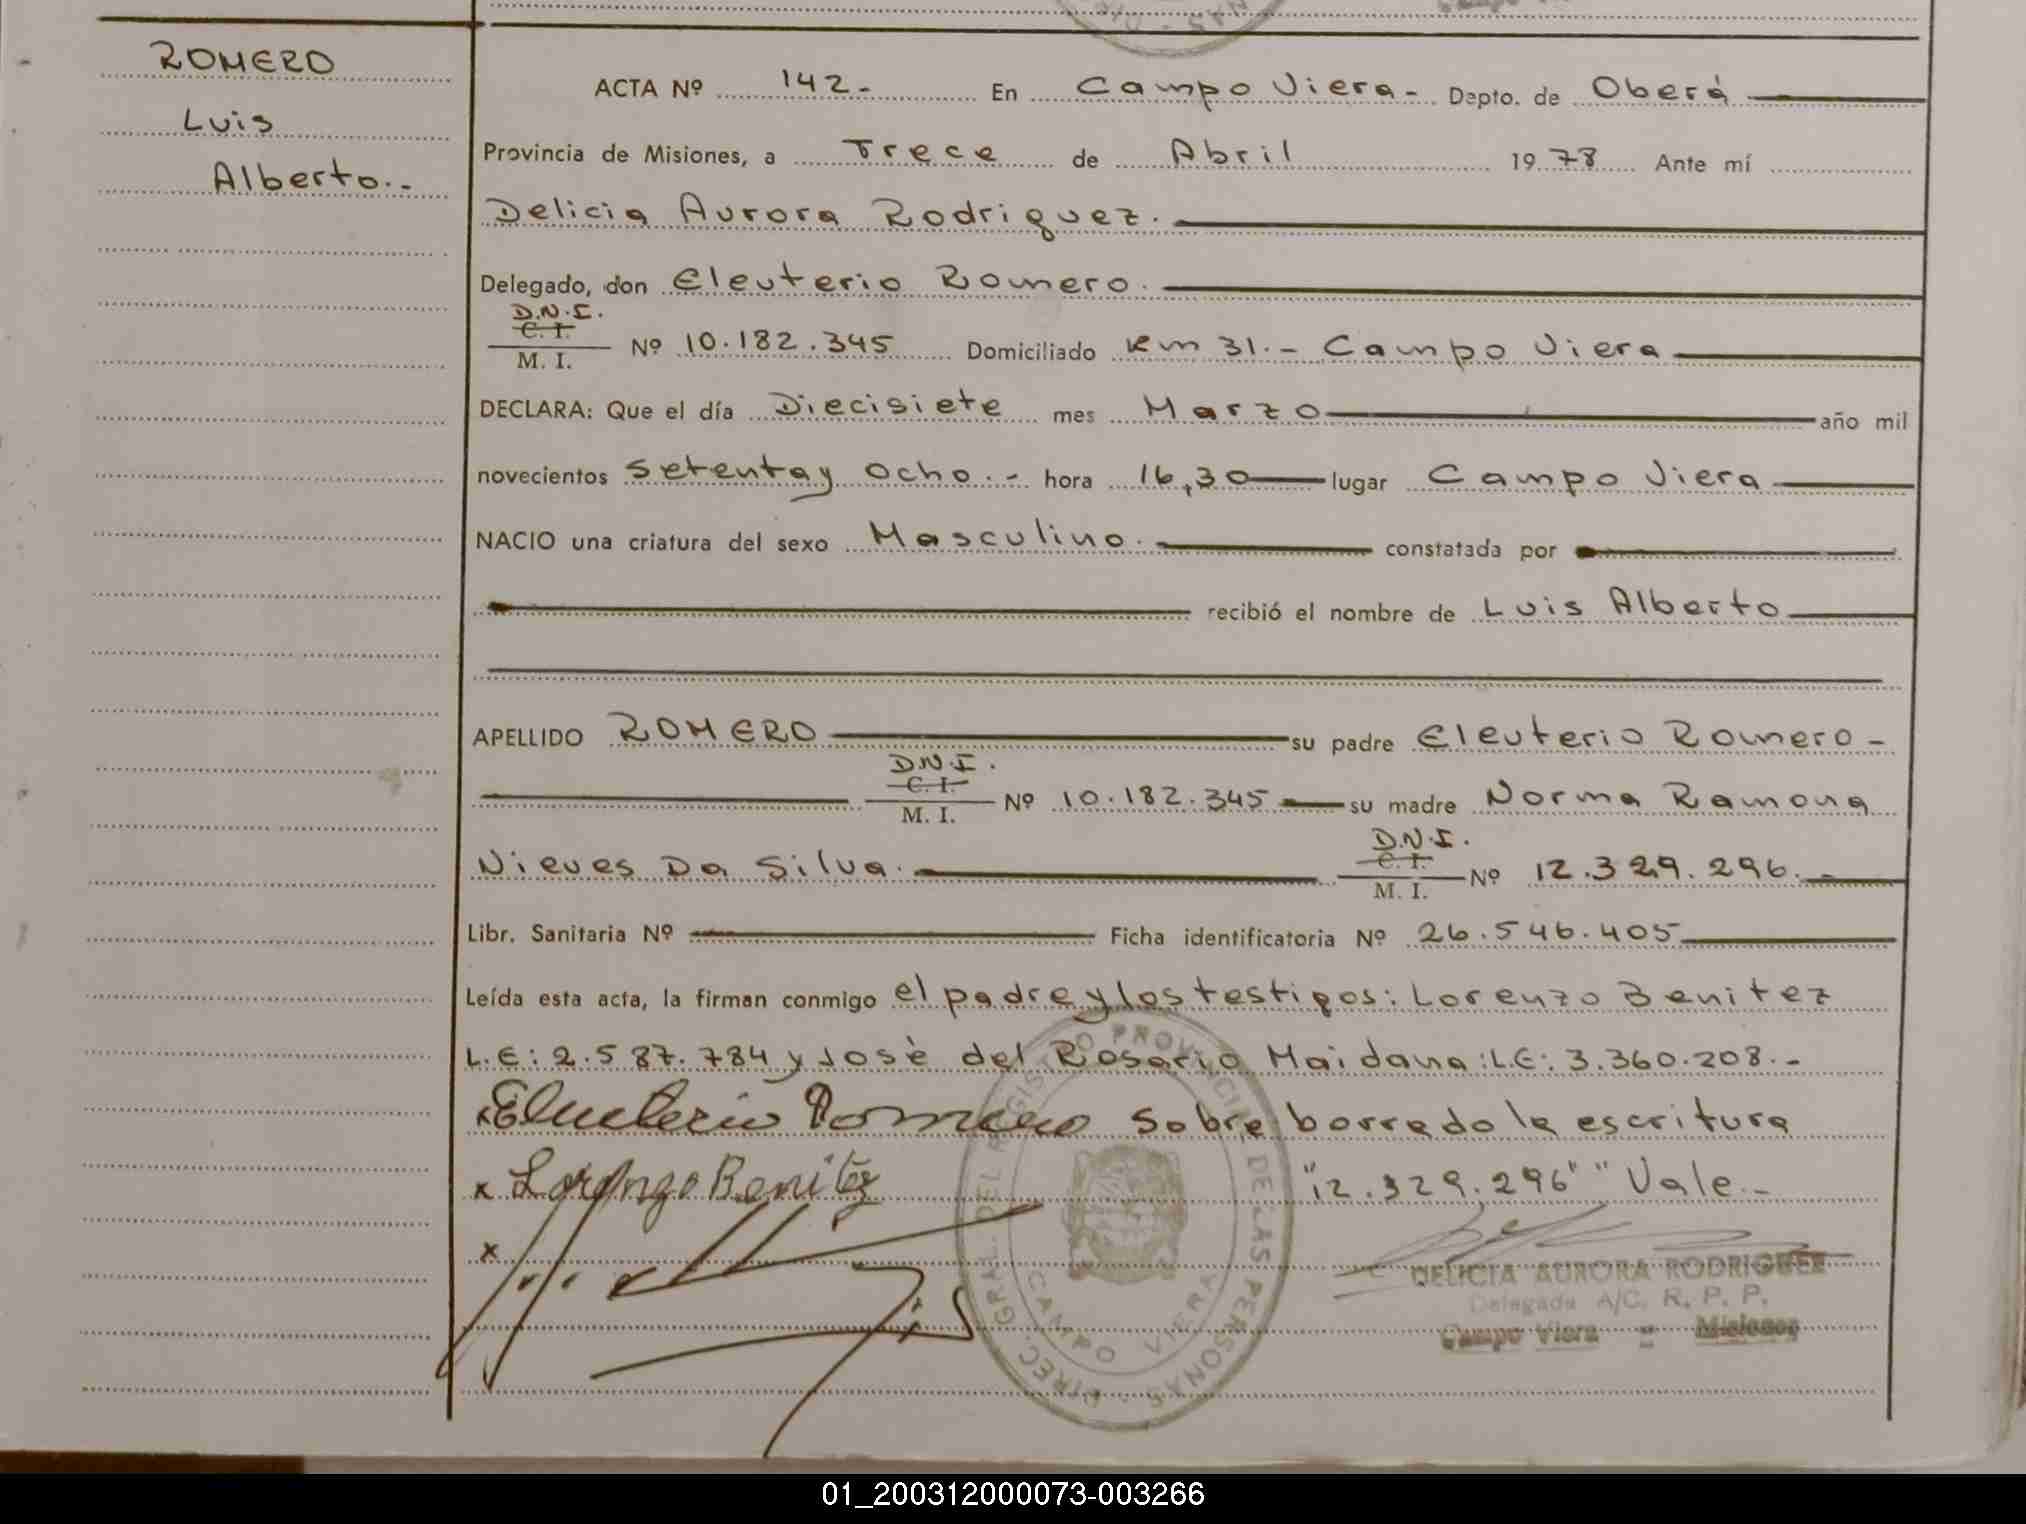 ROMERO
Luis
Alberto.-
ACTA Nº 142.- En Campo Viera.- Depto. de Oberá
Provincia de Misiones, a Trece de Abril 1978 Ante mí
Delicia Aurora Rodriguez.
Delegado, don Eleuterio Romero.
D.N.I.
C. I.
M. I.
Nº 10.182.345 Domiciliado Km 31.- Campo Viera
DECLARA: Que el día Diecisiete mes Marzo año mil
novecientos setenta y ocho.- hora 16,30 lugar Campo Viera
NACIO una criatura del sexo Masculino. constatada por
recibió el nombre de Luis Alberto
APELLIDO ROMERO su padre Eleuterio Romero-
D.N.I.
C. I.
M. I.
Nº 10.182.345 su madre Norma Ramona
D.N.I.
C. I.
M. I.
Nieves Da Silva. Nº 12.329.296.-
Libr. Sanitaria Nº Ficha identificatoria Nº 26.546.405
Leída esta acta, la firman conmigo el padre y los testigos: Lorenzo Benitez
L.E: 2.587.784 y Josè del Rosario Maidana: L.E: 3.360.208.-
x Eleuterio Romero sobre borrado la escritura
x Lorenzo Benitez "12.329.296" "Vale.-
x
DIREC. GRAL. DEL REGISTRO PROVINCIAL DE LAS PERSONAS
CAMPO VIERA
DELICIA AURORA RODRIGUEZ
Delegada A/C. R. P. P.
Campo Viera = Misiones
01_200312000073-003266